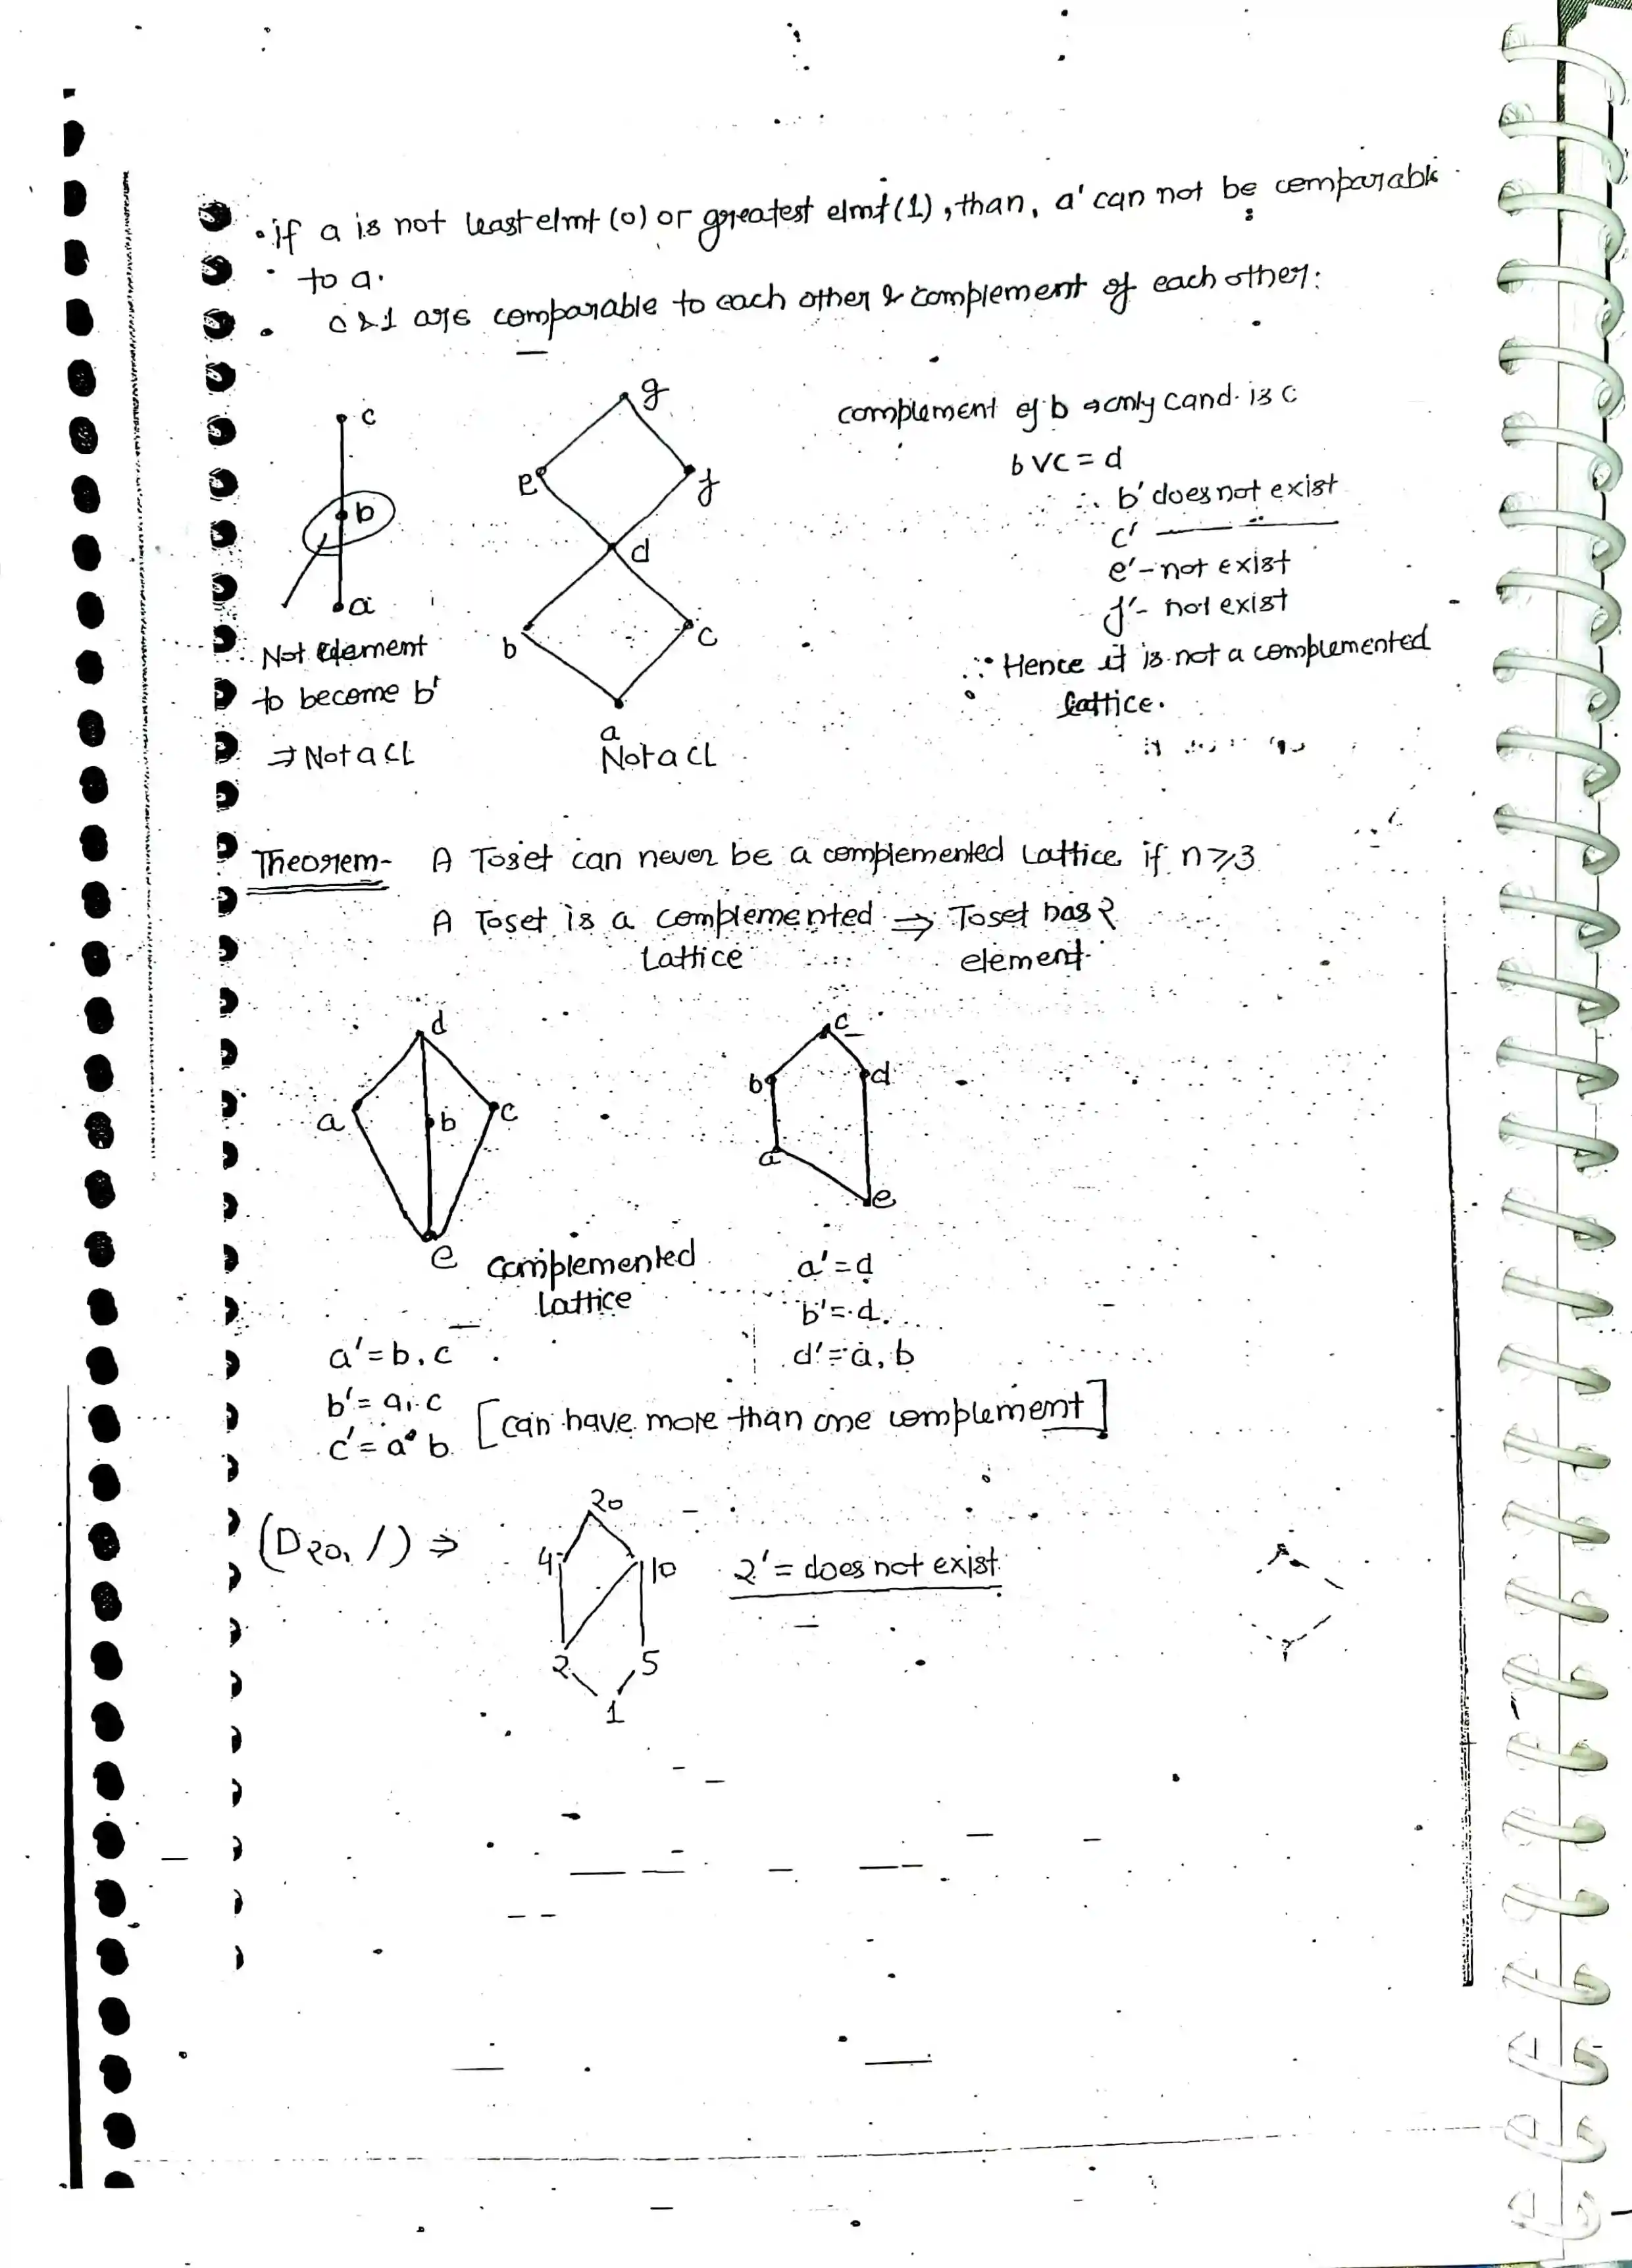 • if a is not least elmt (0) or greatest elmt (1), than, a' can not be comparable
to a.
• 0 & 1 are comparable to each other & complement of each other.
c
b
a
Not element
to become b'
⇒ Not a CL
g
e
f
d
b
c
a
Not a CL
complement of b → only cand. is c
b ∨ c = d
∴ b' does not exist
c' ——— " ———
e' - not exist
f' - not exist
∴ Hence it is not a complemented
lattice.
Theorem- A Toset can never be a complemented Lattice if n ⩾ 3
A Toset is a complemented ⇒ Toset has 2
Lattice element.
d
a
b
c
e
complemented
Lattice
a' = b, c
b' = a, c
c' = a, b
[can have more than one complement]
c
b
d
a
e
a' = d
b' = d
d' = a, b
(D20, /) ⇒
20
4
10
2
5
1
2' = does not exist